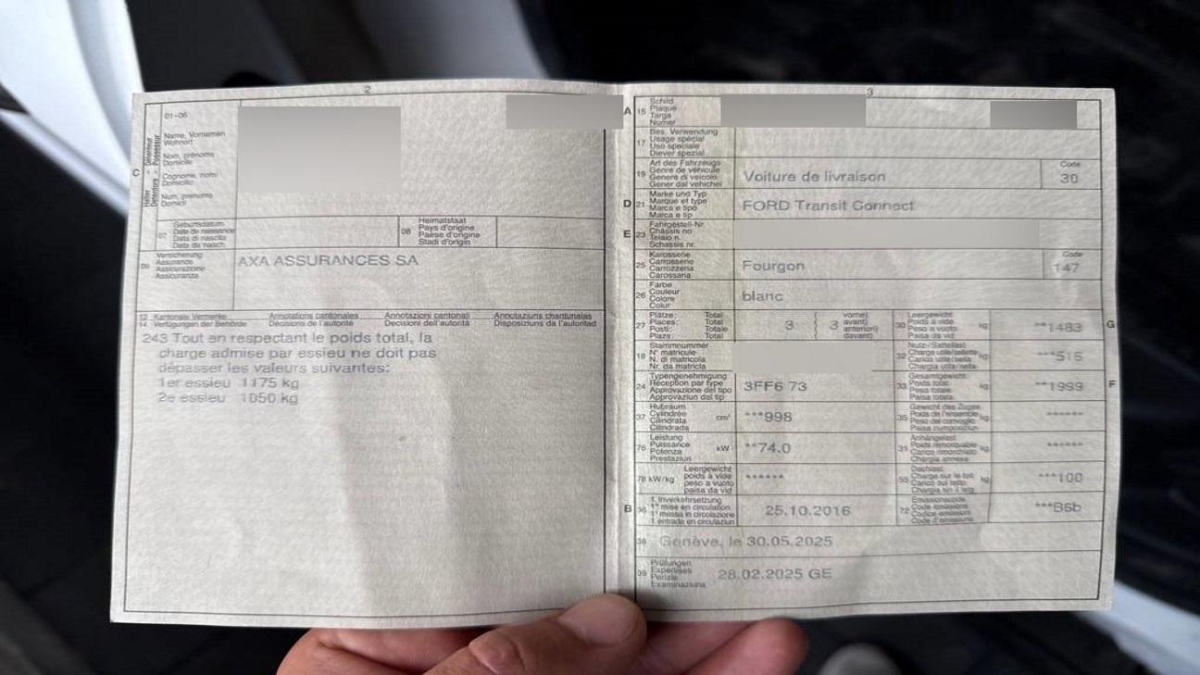 2
01-06
Name, Vornamen
Wohnort
Nom, prénoms
Domicile
Cognome, nomi
Domicilio
Num, prenums
Domicil
C
07
Geburtsdatum
Date de naissance
Data di nascita
Data da nasch.
08
Heimatstaat
Pays d'origine
Paese d'origine
Stadi d'origin
09
Versicherung
Assurance
Assicurazione
Assicuranza
AXA ASSURANCES SA
13 Kantonale Vermerke Annotations cantonales Annotazioni cantonali Annotaziuns chantunalas
14 Verfügungen der Behörde Décisions de l'autorité Decisioni dell'autorità Disposiziuns da l'autoritad
243 Tout en respectant le poids total, la
charge admise par essieu ne doit pas
dépasser les valeurs suivantes:
1er essieu 1175 kg
2e essieu 1050 kg
3
A 15
Schild
Plaque
Targa
Numer
17
Bes. Verwendung
Usage spécial
Uso speciale
Diever spezial
19
Art des Fahrzeugs
Genre de véhicule
Genere di veicolo
Gener dal vehichel
Voiture de livraison
Code
30
D 21
Marke und Typ
Marque et type
Marca e tipo
Marca e tip
FORD Transit Connect
E 23
Fahrgestell-Nr.
Châssis no
Telaio n.
Schassis nr.
25
Karosserie
Carrosserie
Carrozzeria
Carossaria
Fourgon
Code
147
26
Farbe
Couleur
Colore
Colur
blanc
27
Plätze: Total
Places: Total
Posti: Totale
Plazs: Total
3 ( 3
vorne)
avant)
anteriori)
davant)
30
Leergewicht
Poids à vide
Peso a vuoto
Paisa da vid
kg
**1483
G
18
Stammnummer
N° matricule
N. di matricola
Nr. da matricla
32
Nutz-/Sattellast
Charge utile/sellette
Carico utile/sella
Chargia utila/sella
kg
***516
24
Typengenehmigung
Réception par type
Approvazione del tipo
Approvaziun dal tip
3FF6 73
33
Gesamtgewicht
Poids total
Peso totale
Paisa totala
kg
**1999
F
37
Hubraum
Cylindrée
Cilindrata
Cilindrada
cm³
***998
35
Gewicht des Zuges
Poids de l'ensemble
Peso del convoglio
Paisa cumposiziun
kg
******
76
Leistung
Puissance
Potenza
Prestaziun
kW
**74.0
31
Anhängelast
Poids remorquable
Carico rimorchiato
Chargia annexa
kg
******
78 kW/kg
Leergewicht
poids à vide
peso a vuoto
paisa da vid
******
55
Dachlast
Charge sur le toit
Carico sul tetto
Chargia sin il tetg
kg
***100
B 36
1. Inverkehrsetzung
1re mise en circulation
1a messa in circolazione
1. entrada en circulaziun
25.10.2016
72
Emissionscode
Code émissions
Codice emissioni
Code d'emissiuns
***B6b
38
Genève, le 30.05.2025
39
Prüfungen
Expertises
Perizie
Examinaziuns
28.02.2025 GE